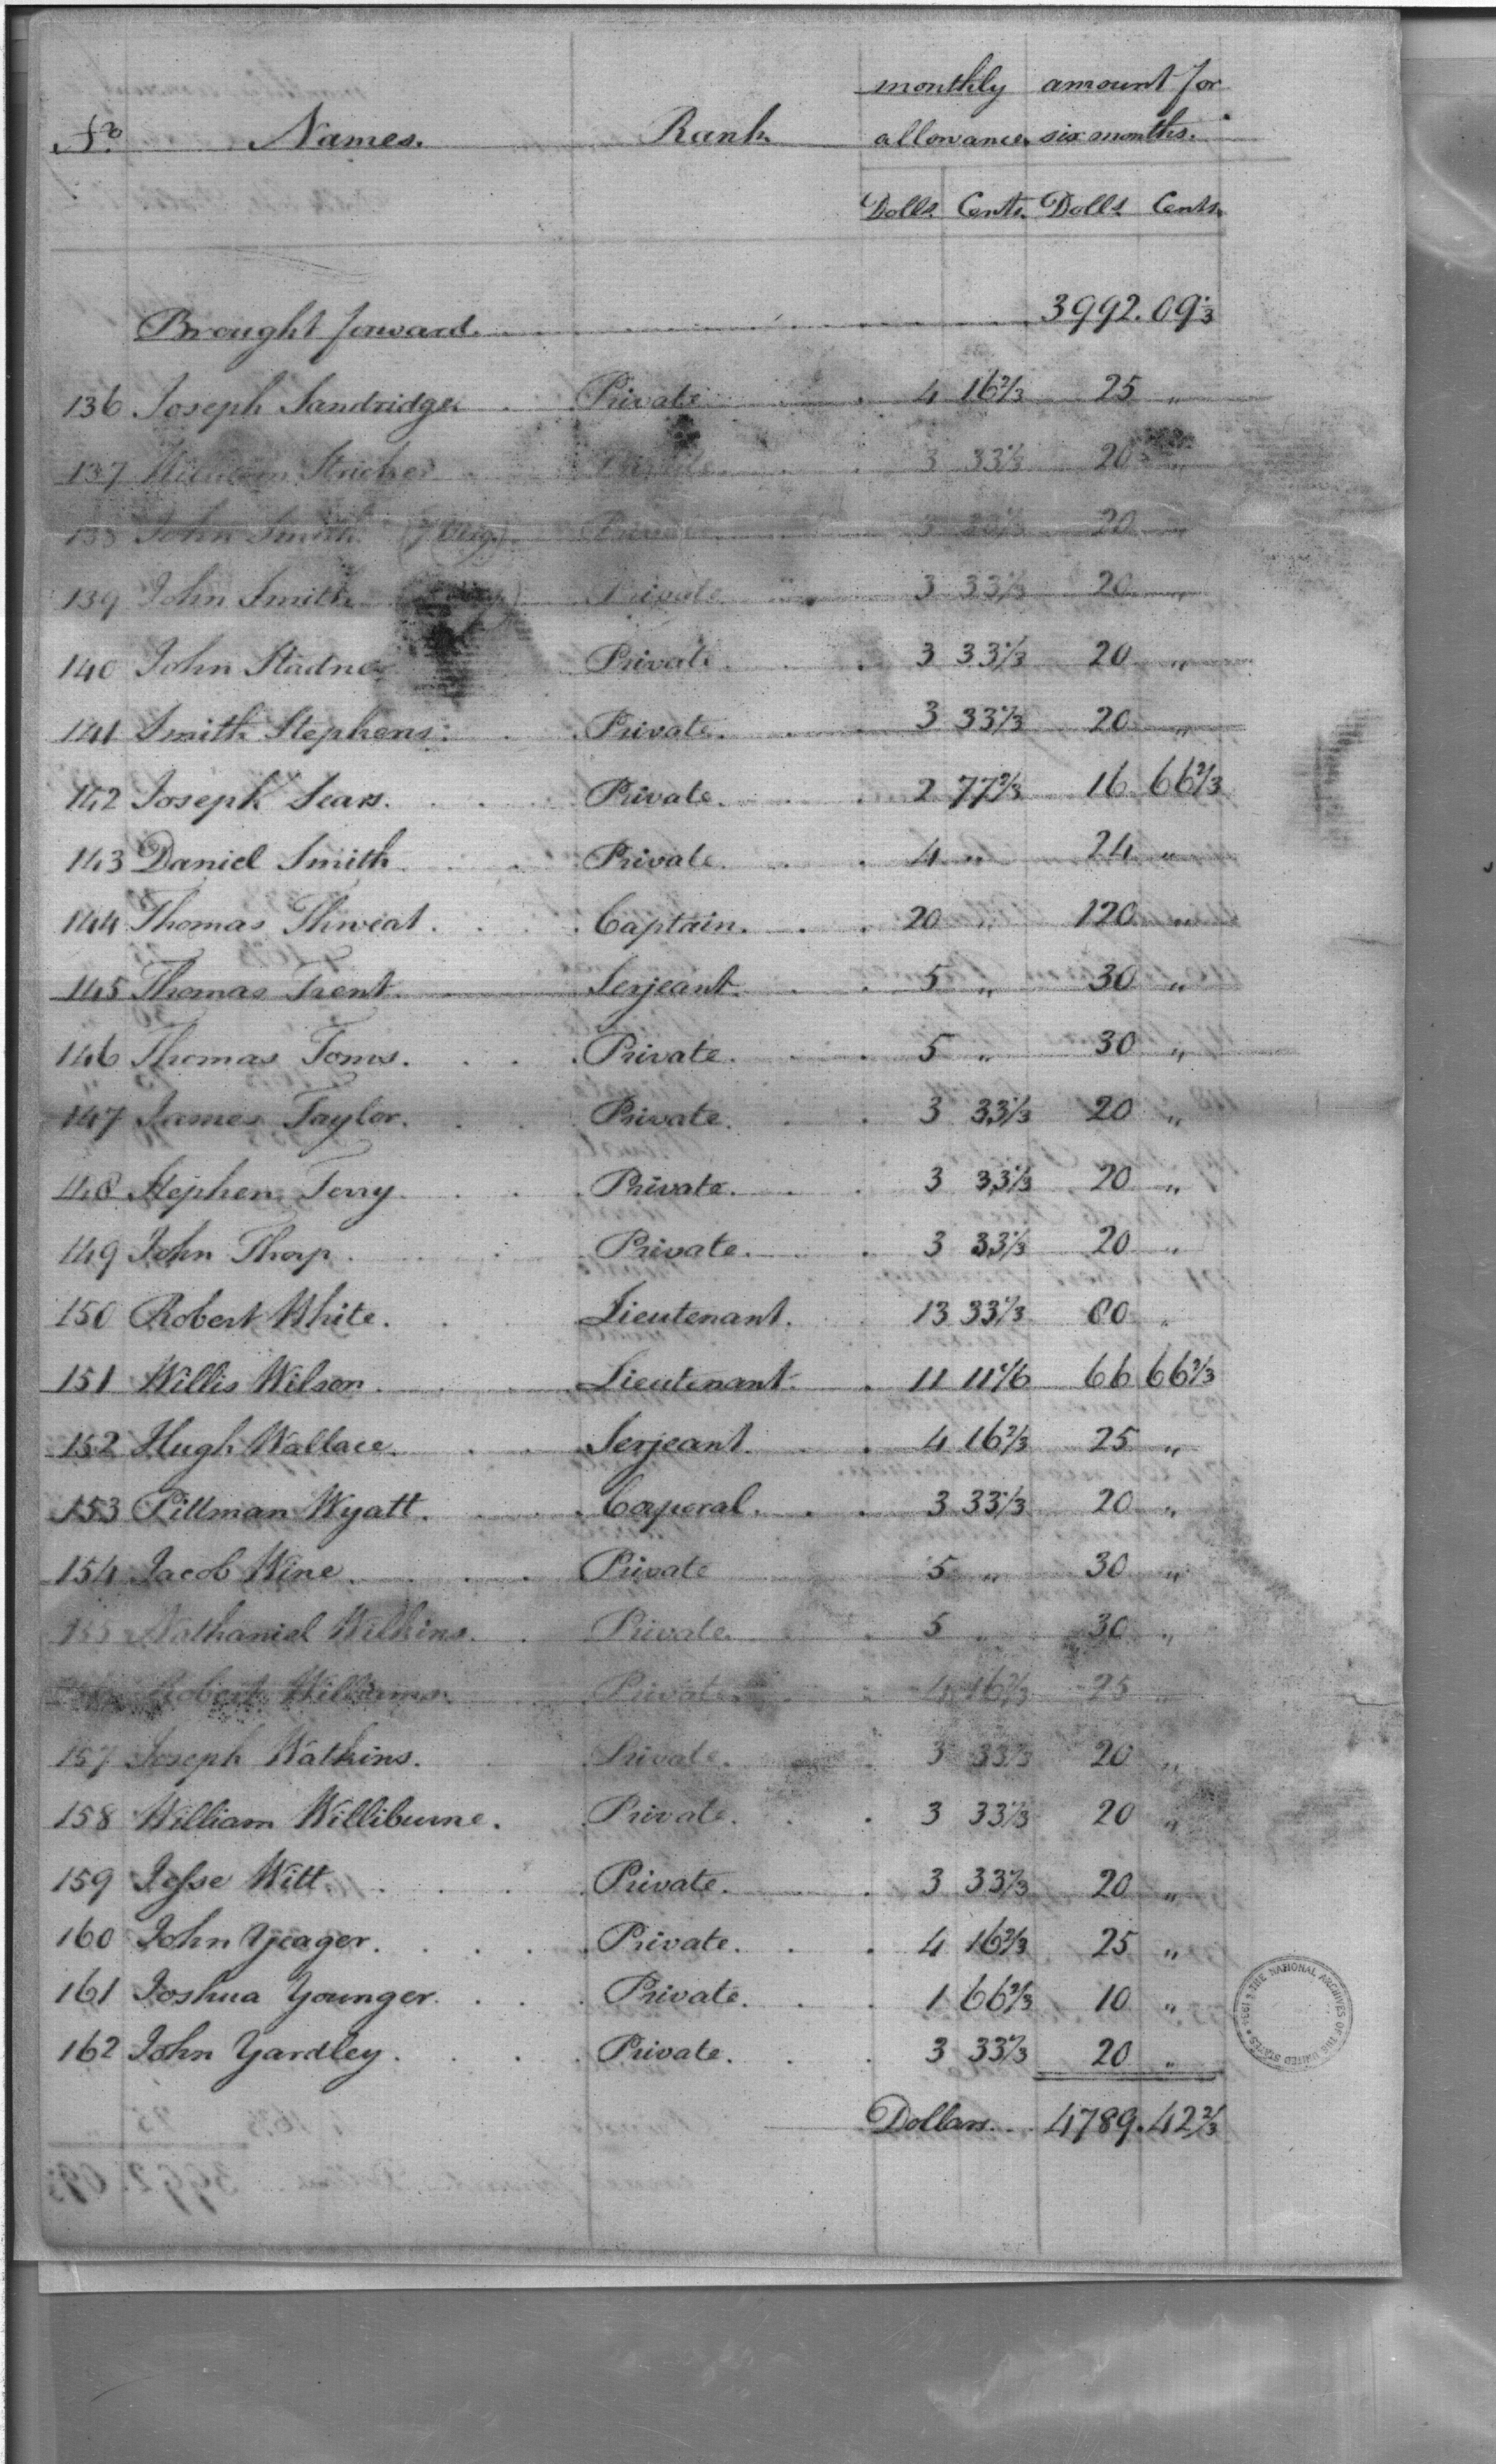 No. Names. Rank monthly allowance amount for six months.
Dolls. Cents. Dolls. Cents.
Brought forward. 3992.09⅓
136 Joseph Sandridge Private 4 16⅔ 25 "
137 William Private 3 33⅓ 20 "
138 John Smith Private 3 33⅓ 20 "
139 John Smith Private 3 33⅓ 20 "
140 John Stadner Private. 3 33⅓ 20 "
141 Smith Stephens. Private. 3 33⅓ 20 "
142 Joseph Sears. Private. 2 77⅔ 16 66⅔
143 Daniel Smith Private. 4 " 24 "
144 Thomas Thweat. Captain. 20 " 120 "
145 Thomas Trent. Serjeant. 5 " 30 "
146 Thomas Toms. Private. 5 " 30 "
147 James Taylor. Private. 3 33⅓ 20 "
148 Stephen Terry. Private. 3 33⅓ 20 "
149 John Thorp. Private. 3 33⅓ 20 "
150 Robert White. Lieutenant. 13 33⅓ 80 "
151 Willis Wilson. Lieutenant. 11 11⅙ 66 66⅔
152 Hugh Wallace. Serjeant. 4 16⅔ 25 "
153 Pillman Wyatt. Caporal. 3 33⅓ 20 "
154 Jacob Wine. Private 5 " 30 "
155 Nathaniel Wilkins. Private. 5 " 30 "
Robert Williams. Private. 4 16⅔ 25 "
157 Joseph Watkins. Private. 3 33⅓ 20 "
158 William Williburne. Private. 3 33⅓ 20 "
159 Jesse Witt. Private. 3 33⅓ 20 "
160 John Yeager. Private. 4 16⅔ 25 "
161 Joshua Younger. Private. 1 66⅔ 10 "
162 John Yardley. Private. 3 33⅓ 20 "
Dollars. 4789.42⅔
THE NATIONAL ARCHIVES OF THE UNITED STATES